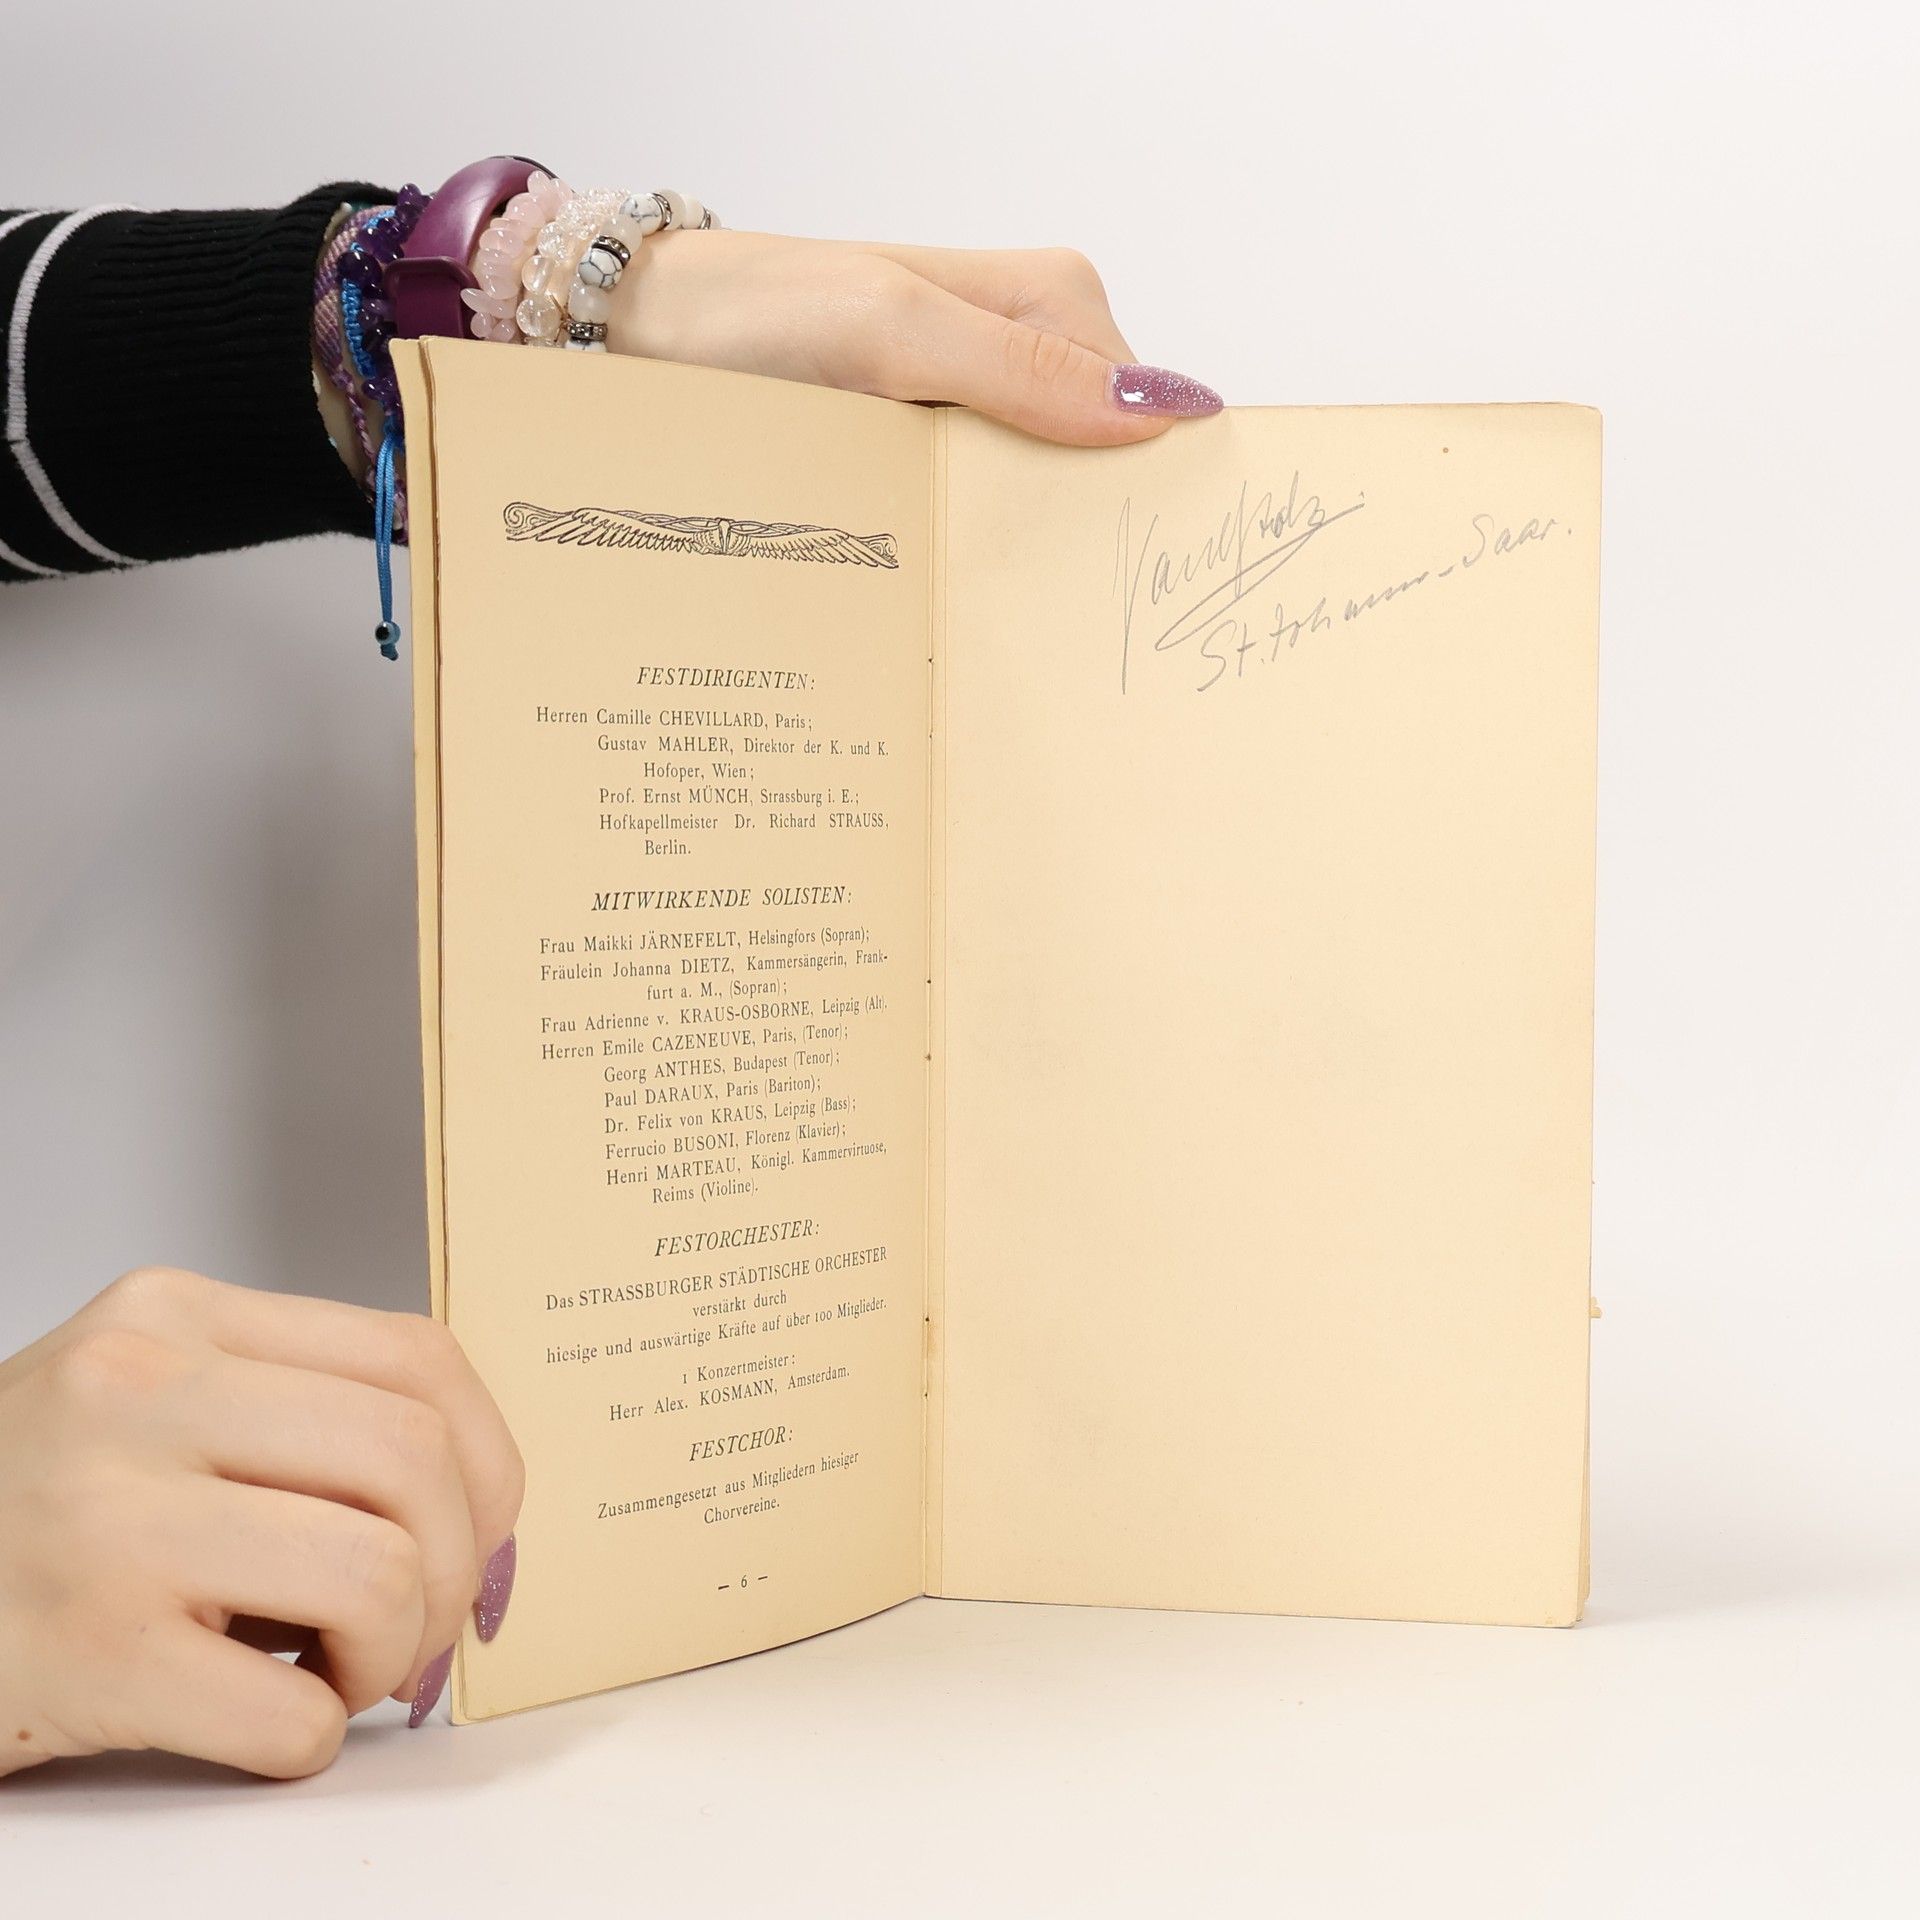 FESTDIRIGENTEN:
Herren Camille CHEVILLARD, Paris;
Gustav MAHLER, Direktor der K. und K.
Hofoper, Wien;
Prof. Ernst MÜNCH, Strassburg i. E.;
Hofkapellmeister Dr. Richard STRAUSS,
Berlin.
MITWIRKENDE SOLISTEN:
Frau Maikki JÄRNEFELT, Helsingfors (Sopran);
Fräulein Johanna DIETZ, Kammersängerin, Frank-
furt a. M., (Sopran);
Frau Adrienne v. KRAUS-OSBORNE, Leipzig (Alt).
Herren Emile CAZENEUVE, Paris, (Tenor);
Georg ANTHES, Budapest (Tenor);
Paul DARAUX, Paris (Bariton);
Dr. Felix von KRAUS, Leipzig (Bass);
Ferrucio BUSONI, Florenz (Klavier);
Henri MARTEAU, Königl. Kammervirtuose,
Reims (Violine).
FESTORCHESTER:
Das STRASSBURGER STÄDTISCHE ORCHESTER
verstärkt durch
hiesige und auswärtige Kräfte auf über 100 Mitglieder.
1 Konzertmeister:
Herr Alex. KOSMANN, Amsterdam.
FESTCHOR:
Zusammengesetzt aus Mitgliedern hiesiger
Chorvereine.
— 6 —
St. Johann-Saar.